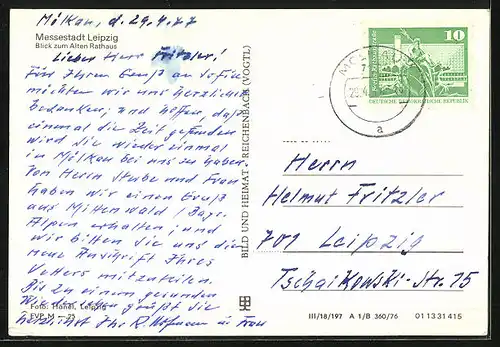 Mölkau, d. 29.4.77
Messestadt Leipzig
Blick zum Alten Rathaus
Lieber Herr Fritzler!
Für Ihren Gruß an Sofie
möchten wir uns herzlich
bedanken; und hoffen, daß
einmal die Zeit gefunden
wird Sie wieder einmal
in Mölkau bei uns zu haben.
Von Herrn Stube und Frau
haben wir einen Gruß
aus Mittenwald / Bayr.
Alpen erhalten; und
wir bitten Sie uns die
neue Anschrift Ihres
Vetters mitzuteilen.
Bis zu einem gesunden
Wiedersehen grüßt Sie
herzlichst Ihr R. Hofmann u. Frau
Foto: Leipzig
EVP M -,25
BILD UND HEIMAT · REICHENBACH (VOGTL)
10
DEUTSCHE DEMOKRATISCHE REPUBLIK
a
Herrn
Helmut Fritzler
701 Leipzig
Tschaikowski-Str. 15
III/18/197 A 1/B 360/76 01 13 31 415